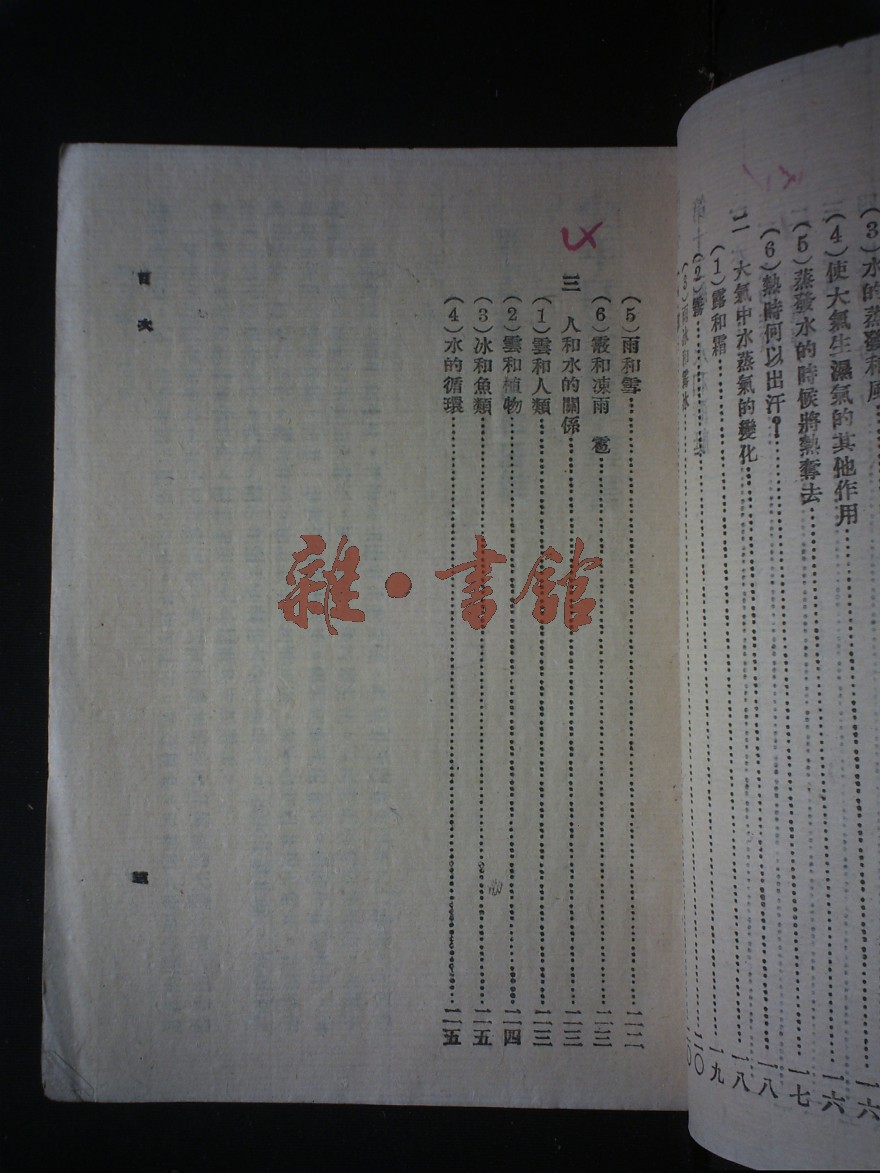 (3)水的蒸發和風……一六
(4)使大氣生濕氣的其他作用……一六
(5)蒸發水的時候將熱奪去……一七
(6)熱時何以出汗?……一八
二 大氣中水蒸氣的變化……一八
(1)露和霜……一九
(2)……二〇
(5)雨和雪……二二
(6)霰和凍雨 雹……二三
三 人和水的關係……二三
(1)雲和人類……二三
(2)雲和植物……二四
(3)冰和魚類……二五
(4)水的循環……二五
目次
雜·書館